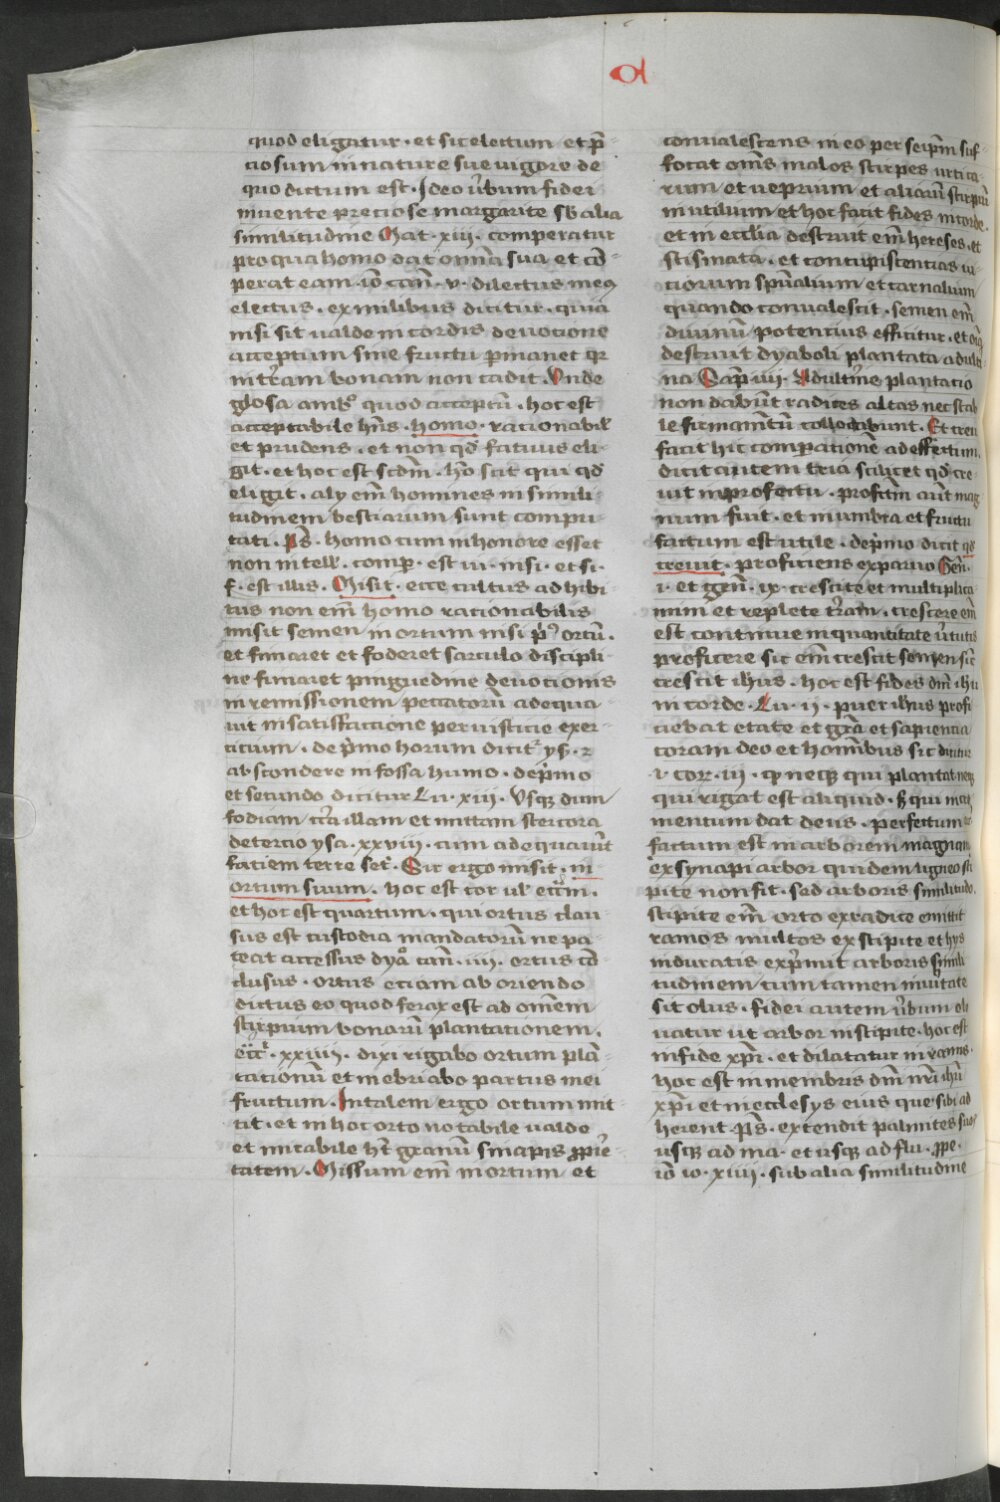 a
quod eligatur · et sic electum et p̄
ciosum in nature sue uigore de
quo dictum est · Ideo ūbum fidei
inuente preciose margarite sb̄ alia
similitudine Mat · xiii · comperatur
pro qua homo dat omnia sua et cō
perat eam · iō can̄ · v · dilectus meꝯ
electus · ex milibus dicitur · quia
nisi sit ualde in cordis deuotione
acceptum sine fructu ꝑmanet qr
in tr̄am bonam non cadit · Vnde
glosa ambꝰ quod acceptū · hoc est
acceptabile hn̄s · homo · racionabil
et prudens · et non qd̄ fatuus eli
git · et hoc est scdm̄ · hō scit qui qd̄
eligit · aly em̄ homines in simili
tudinem bestiarum sunt compri
tati · Ps̄ · homo cum in honore esset
non intell · comp · est iu · insi · et si ·
f · est illis · Misit · ecce cultus adhibi
tus non em̄ homo racionabilis
misit semen in ortum nisi pͥꝰ ortū ·
et fimaret et foderet sarculo discipli
ne fimaret pinguedine deuotionis
in remissionem peccatorū adequa
uit in satisfactione per iusticie exer
citium · de pͥmo horum dicitͬ ys · 2
abscondere in fossa humo · de pͥmo
et secundo dicitur Lu · xiii · Vsqꝫ dum
fodiam cͥca illam et mittam stercora
de tercio ysa · xxviii · cum adequauīt
faciem terre setͬ · Sic ergo misit · in
ortum suum · hoc est cor ul ecc̄m ·
et hoc est quartum · qui ortus clau
sus est custodia mandatorū ne pa
teat accessus dyaͦ can̄ · iiii · ortus cō
clusus · ortus eciam ab oriendo
dictus eo quod ferax est ad om̄em
stirpium bonarū plantationem ·
ecc̄ͥ · xxiiii · dixi rigabo ortum plā
tationū et inebriabo partus mei
fructum · In talem ergo ortum mit
tit · et in hoc orto notabile ualde
et mirabile ht̄ granū sinapis ꝓpͥe
tatem · Missum em̄ in ortum et
conualescens in eo per seip̄m suf
focat om̄s malos stirpes urtica
rum et ueprium et aliarū stirpiū
inutilium et hoc facit fides in corde ·
et in ecclīa destruit em̄ hereses · et
scismata · et concupiscencias ui
ciorum spūalium et carnalium
quando conualescit · semen em̄
diuinū potencius efficitur · et oīa
destruit dyaboli plantata adulti
na Sap̄ iiii · Adultͥne plantacio
non dabūt radices altas nec stab
le firmamētū collocabunt · Et creu
facit hic compacionē ad effectum ·
dicit autem tria scilicet qd̄ cre
uit in profectu · profctm̄ aut̄ mag
num fuit · et in umbra et fructu
factum est utile · de pͥmo dicit qd̄
creuit · proficiens ex paruo Gen̄ ·
i · et gen̄ · ix · crescite et multiplica
mini et replete tr̄am · crescere em̄
est continue in quantitate ūtutis
proficere sic em̄ crescit semen sic̄
crescit ihus · hoc est fides dm̄ ihu
in corde · Lu · ii · puer ihus profi
ciebat etate et grā et sapientia
coram deo et hominibus sic dicitur
i · cor · iii · qꝫ neqꝫ qui plantat neqꝫ
qui rigat est aliquid · sꝫ qui incre
mentum dat deus · perfectum ·
factum est in arborem magnam
ex synapi arbor quidem ligneo sti
pite non fit · sed arboris similitudo ·
stipite em̄ orto ex radice emittit
ramos multos ex stipite et hys
induratis expͥmit arboris simili
tudinem cum tamen in uītate
sit olus · fidei autem ūbum ele
uatur ut arbor in stipite · hoc est
in fide xpī · et dilatatur in ramis ·
hoc est in membris dm̄ nrī ihū
xpī et in ecclesys eius que sibi ad
herent · Ps̄ · extendit palmites suos
usqꝫ ad ma · et usqꝫ ad flu · ꝓpe ·
iō io · xiiii · sub alia similitudine